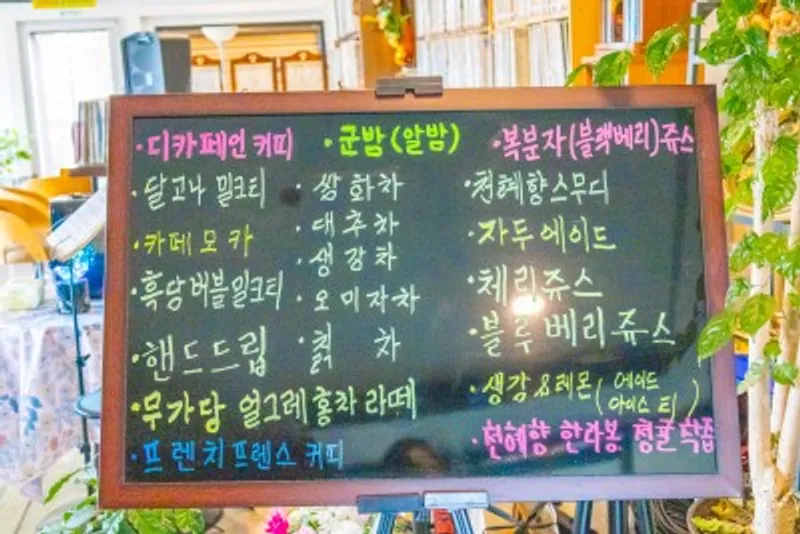 ·디카페인 커피
·달고나 밀크티
·카페모카
·흑당버블밀크티
·핸드드립
·무가당 얼그레이홍차 라떼
·프렌치프렌스 커피
·군밤(알밤)
·쌍화차
·대추차
·생강차
·오미자차
·칡 차
·복분자(블랙베리)쥬스
·천혜향스무디
·자두에이드
·체리쥬스
·블루베리쥬스
·생강&레몬(에이드 아이스티)
·천혜향 한라봉 청귤착즙